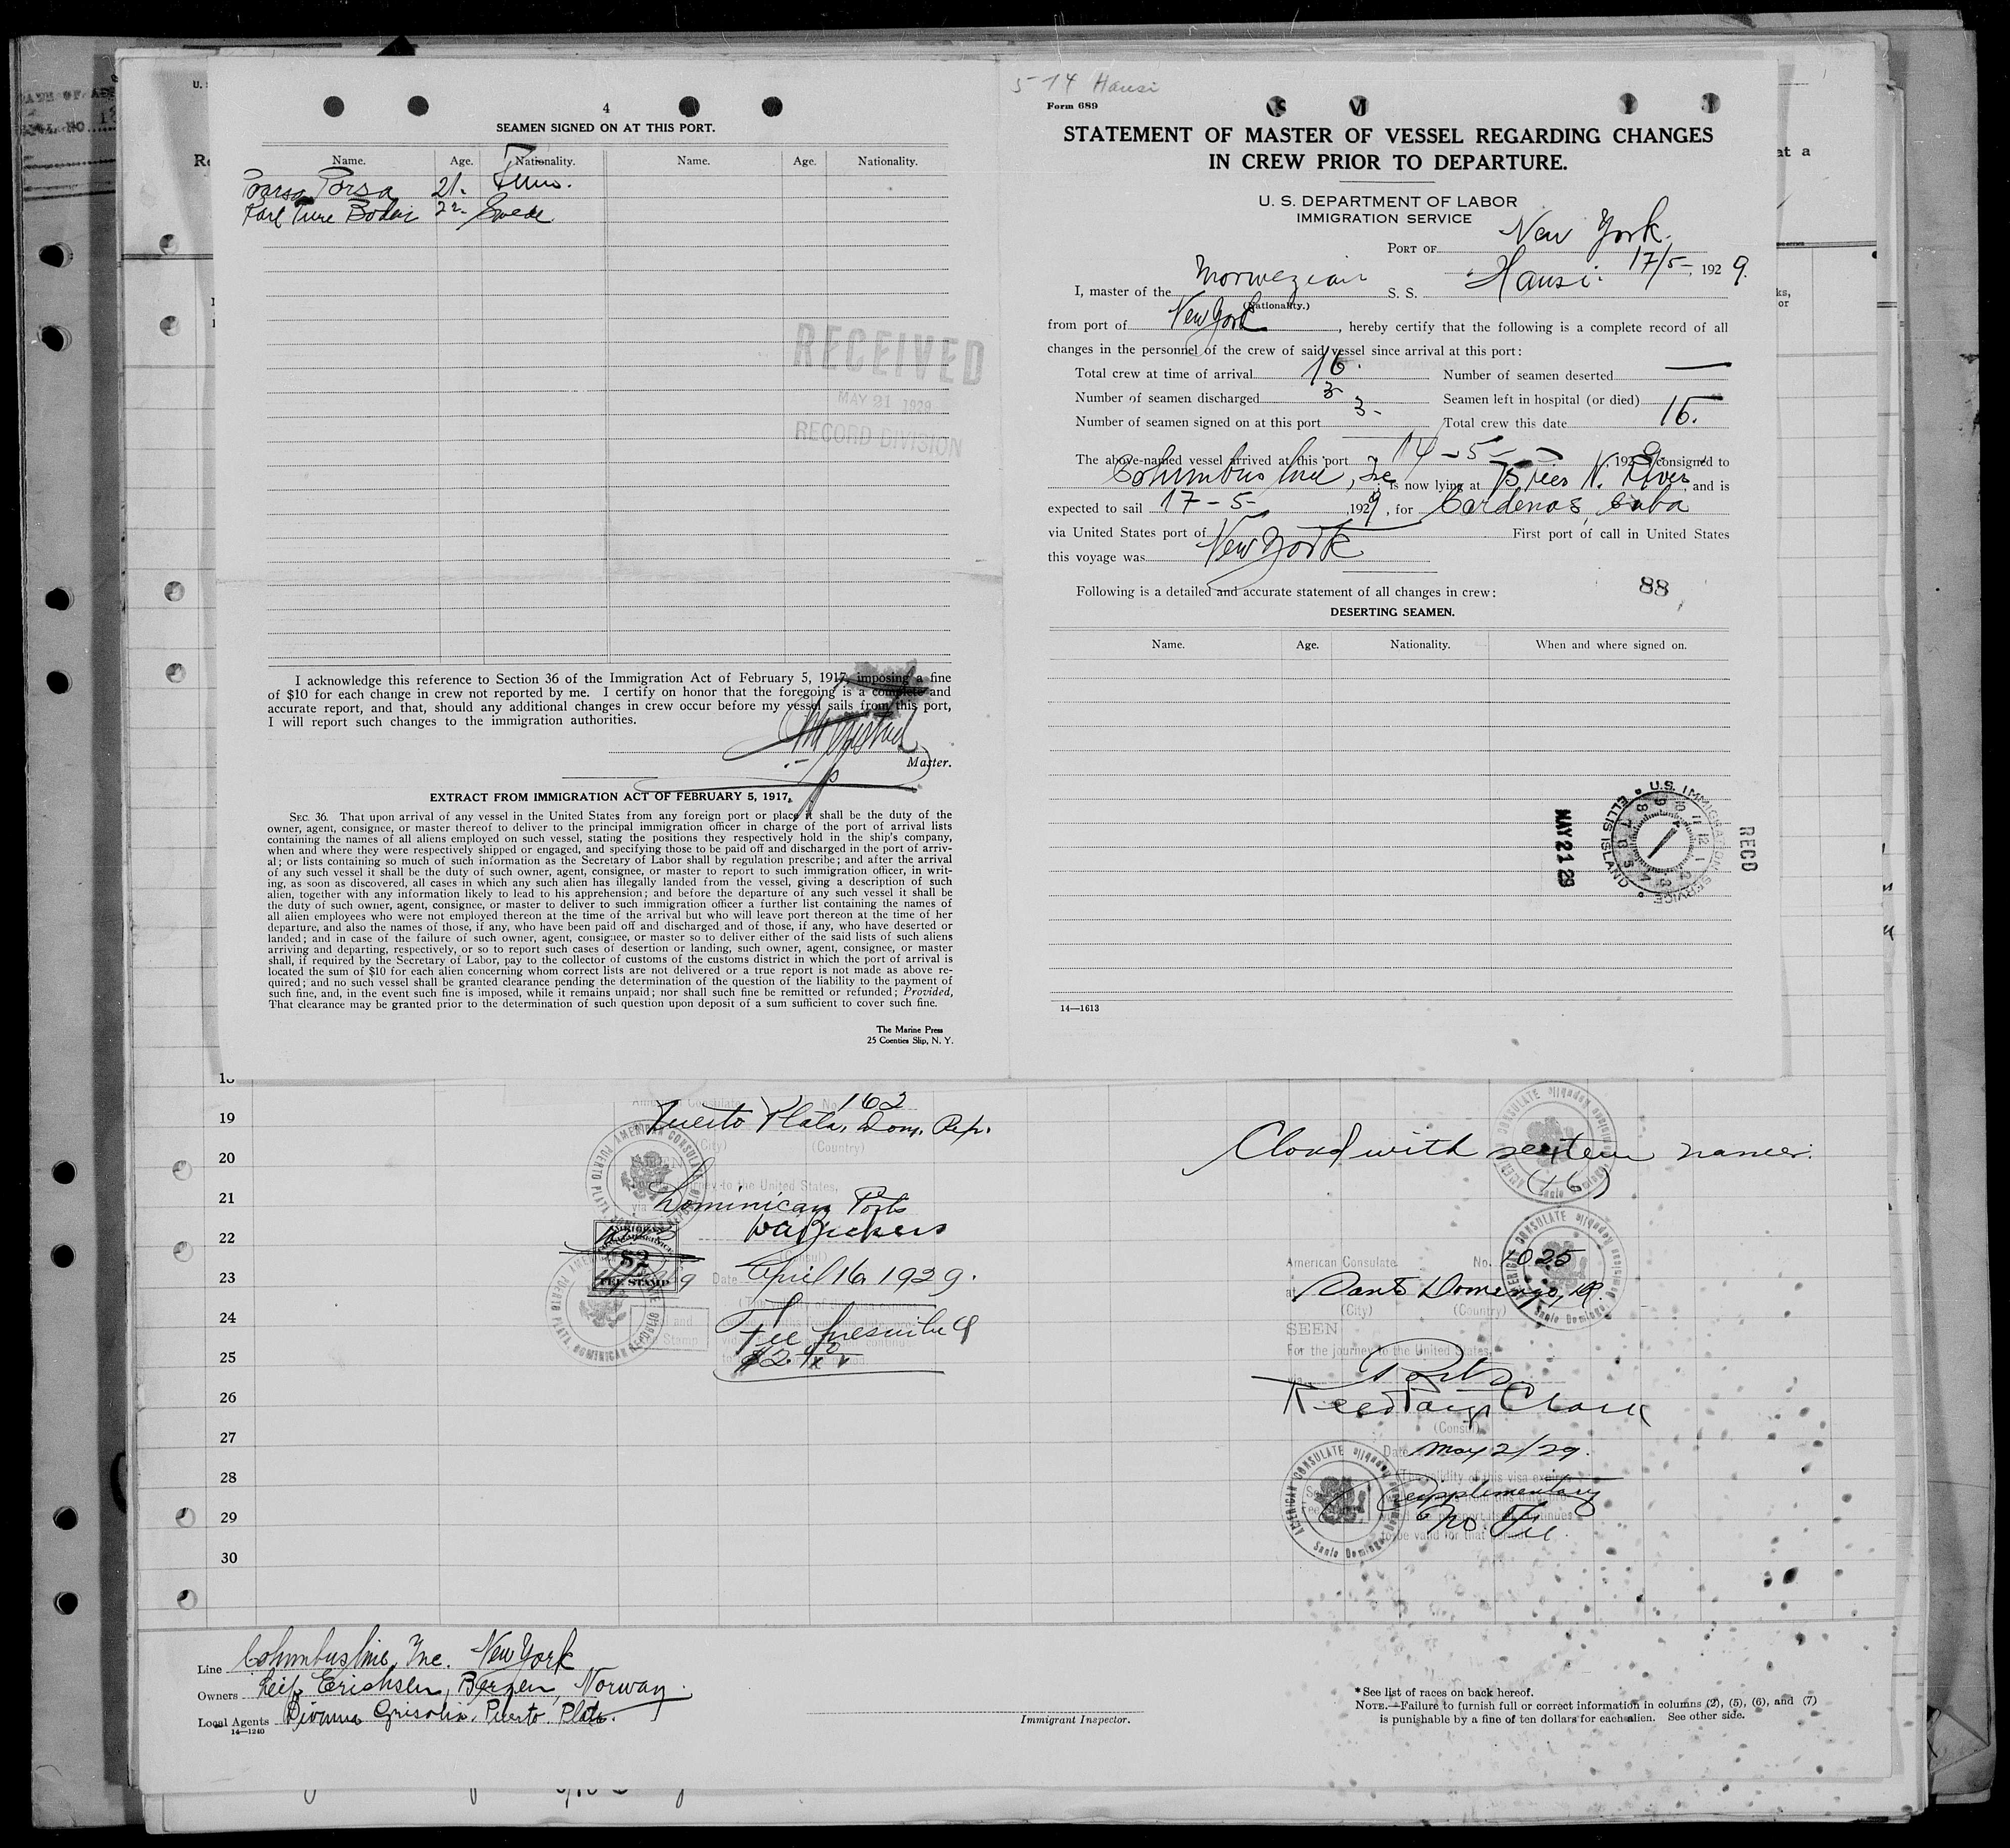 4
SEAMEN SIGNED ON AT THIS PORT.
Name. Age. Nationality. Name. Age. Nationality.
Porsa 21.
Karl Ture Swede
RECEIVED
MAY 21 1929
RECORD DIVISION
I acknowledge this reference to Section 36 of the Immigration Act of February 5, 1917, imposing a fine
of $10 for each change in crew not reported by me. I certify on honor that the foregoing is a complete and
accurate report, and that, should any additional changes in crew occur before my vessel sails from this port,
I will report such changes to the immigration authorities.
Master.
EXTRACT FROM IMMIGRATION ACT OF FEBRUARY 5, 1917.
SEC. 36. That upon arrival of any vessel in the United States from any foreign port or place it shall be the duty of the
owner, agent, consignee, or master thereof to deliver to the principal immigration officer in charge of the port of arrival lists
containing the names of all aliens employed on such vessel, stating the positions they respectively hold in the ship's company,
when and where they were respectively shipped or engaged, and specifying those to be paid off and discharged in the port of arriv-
al; or lists containing so much of such information as the Secretary of Labor shall by regulation prescribe; and after the arrival
of any such vessel it shall be the duty of such owner, agent, consignee, or master to report to such immigration officer, in writ-
ing, as soon as discovered, all cases in which any such alien has illegally landed from the vessel, giving a description of such
alien, together with any information likely to lead to his apprehension; and before the departure of any such vessel it shall be
the duty of such owner, agent, consignee, or master to deliver to such immigration officer a further list containing the names of
all alien employees who were not employed thereon at the time of the arrival but who will leave port thereon at the time of her
departure, and also the names of those, if any, who have been paid off and discharged and of those, if any, who have deserted or
landed; and in case of the failure of such owner, agent, consignee, or master so to deliver either of the said lists of such aliens
arriving and departing, respectively, or so to report such cases of desertion or landing, such owner, agent, consignee, or master
shall, if required by the Secretary of Labor, pay to the collector of customs of the customs district in which the port of arrival is
located the sum of $10 for each alien concerning whom correct lists are not delivered or a true report is not made as above re-
quired; and no such vessel shall be granted clearance pending the determination of the question of the liability to the payment of
such fine, and, in the event such fine is imposed, while it remains unpaid; nor shall such fine be remitted or refunded; Provided,
That clearance may be granted prior to the determination of such question upon deposit of a sum sufficient to cover such fine.
The Marine Press
25 Coenties Slip, N. Y.
5-14 Hansi
Form 689
STATEMENT OF MASTER OF VESSEL REGARDING CHANGES
IN CREW PRIOR TO DEPARTURE.
U. S. DEPARTMENT OF LABOR
IMMIGRATION SERVICE
PORT OF New York.
17/5-, 1929.
I, master of the Norwegian S. S. Hansi.
(Nationality.)
from port of New York, hereby certify that the following is a complete record of all
changes in the personnel of the crew of said vessel since arrival at this port:
Total crew at time of arrival 16. Number of seamen deserted —
Number of seamen discharged 3 Seamen left in hospital (or died) —
Number of seamen signed on at this port 3- Total crew this date 16.
The above-named vessel arrived at this port 14-5-, 1929 consigned to
Columbus Line, Inc is now lying at N. River and is
expected to sail 17-5-, 1929, for Cardenas, Cuba
via United States port of — First port of call in United States
this voyage was New York
Following is a detailed and accurate statement of all changes in crew:
88
DESERTING SEAMEN.
Name. Age. Nationality. When and where signed on.
MAY 21 29
U.S. IMMIGRATION SERVICE ELLIS ISLAND
RECD
14—1613
19
20
21
22
23
24
25
26
27
28
29
30
American Consulate No. 162
Puerto Plata, Dom. Rep.
(City) (Country)
SEEN
journey to the United States,
via Dominican Ports
(Consul)
Date April 16, 1929.
AMERICAN CONSULATE PUERTO PLATA, DOMINICAN REPUBLIC
$2
FEE STAMP
Fee prescribed
$2.
Closed with sixteen names.
(16)
American Consulate No. 1025
at Santo Domingo, D.R.
(City) (Country)
SEEN
For the journey to the United States,
via Ports
Reed Paige Clark
(Consul)
Date May 2/29.
The validity of this visa expires
Supplimentary
No Fee.
AMERICAN CONSULATE Santo Domingo, Dominican Republic
Line Columbus Line, Inc. New York
Owners Leif Erichsen, Bergen, Norway.
Local Agents Divanna Grisolia, Puerto Plata.
14—1240
Immigrant Inspector.
*See list of races on back hereof.
NOTE.—Failure to furnish full or correct information in columns (2), (5), (6), and (7)
is punishable by a fine of ten dollars for each alien. See other side.